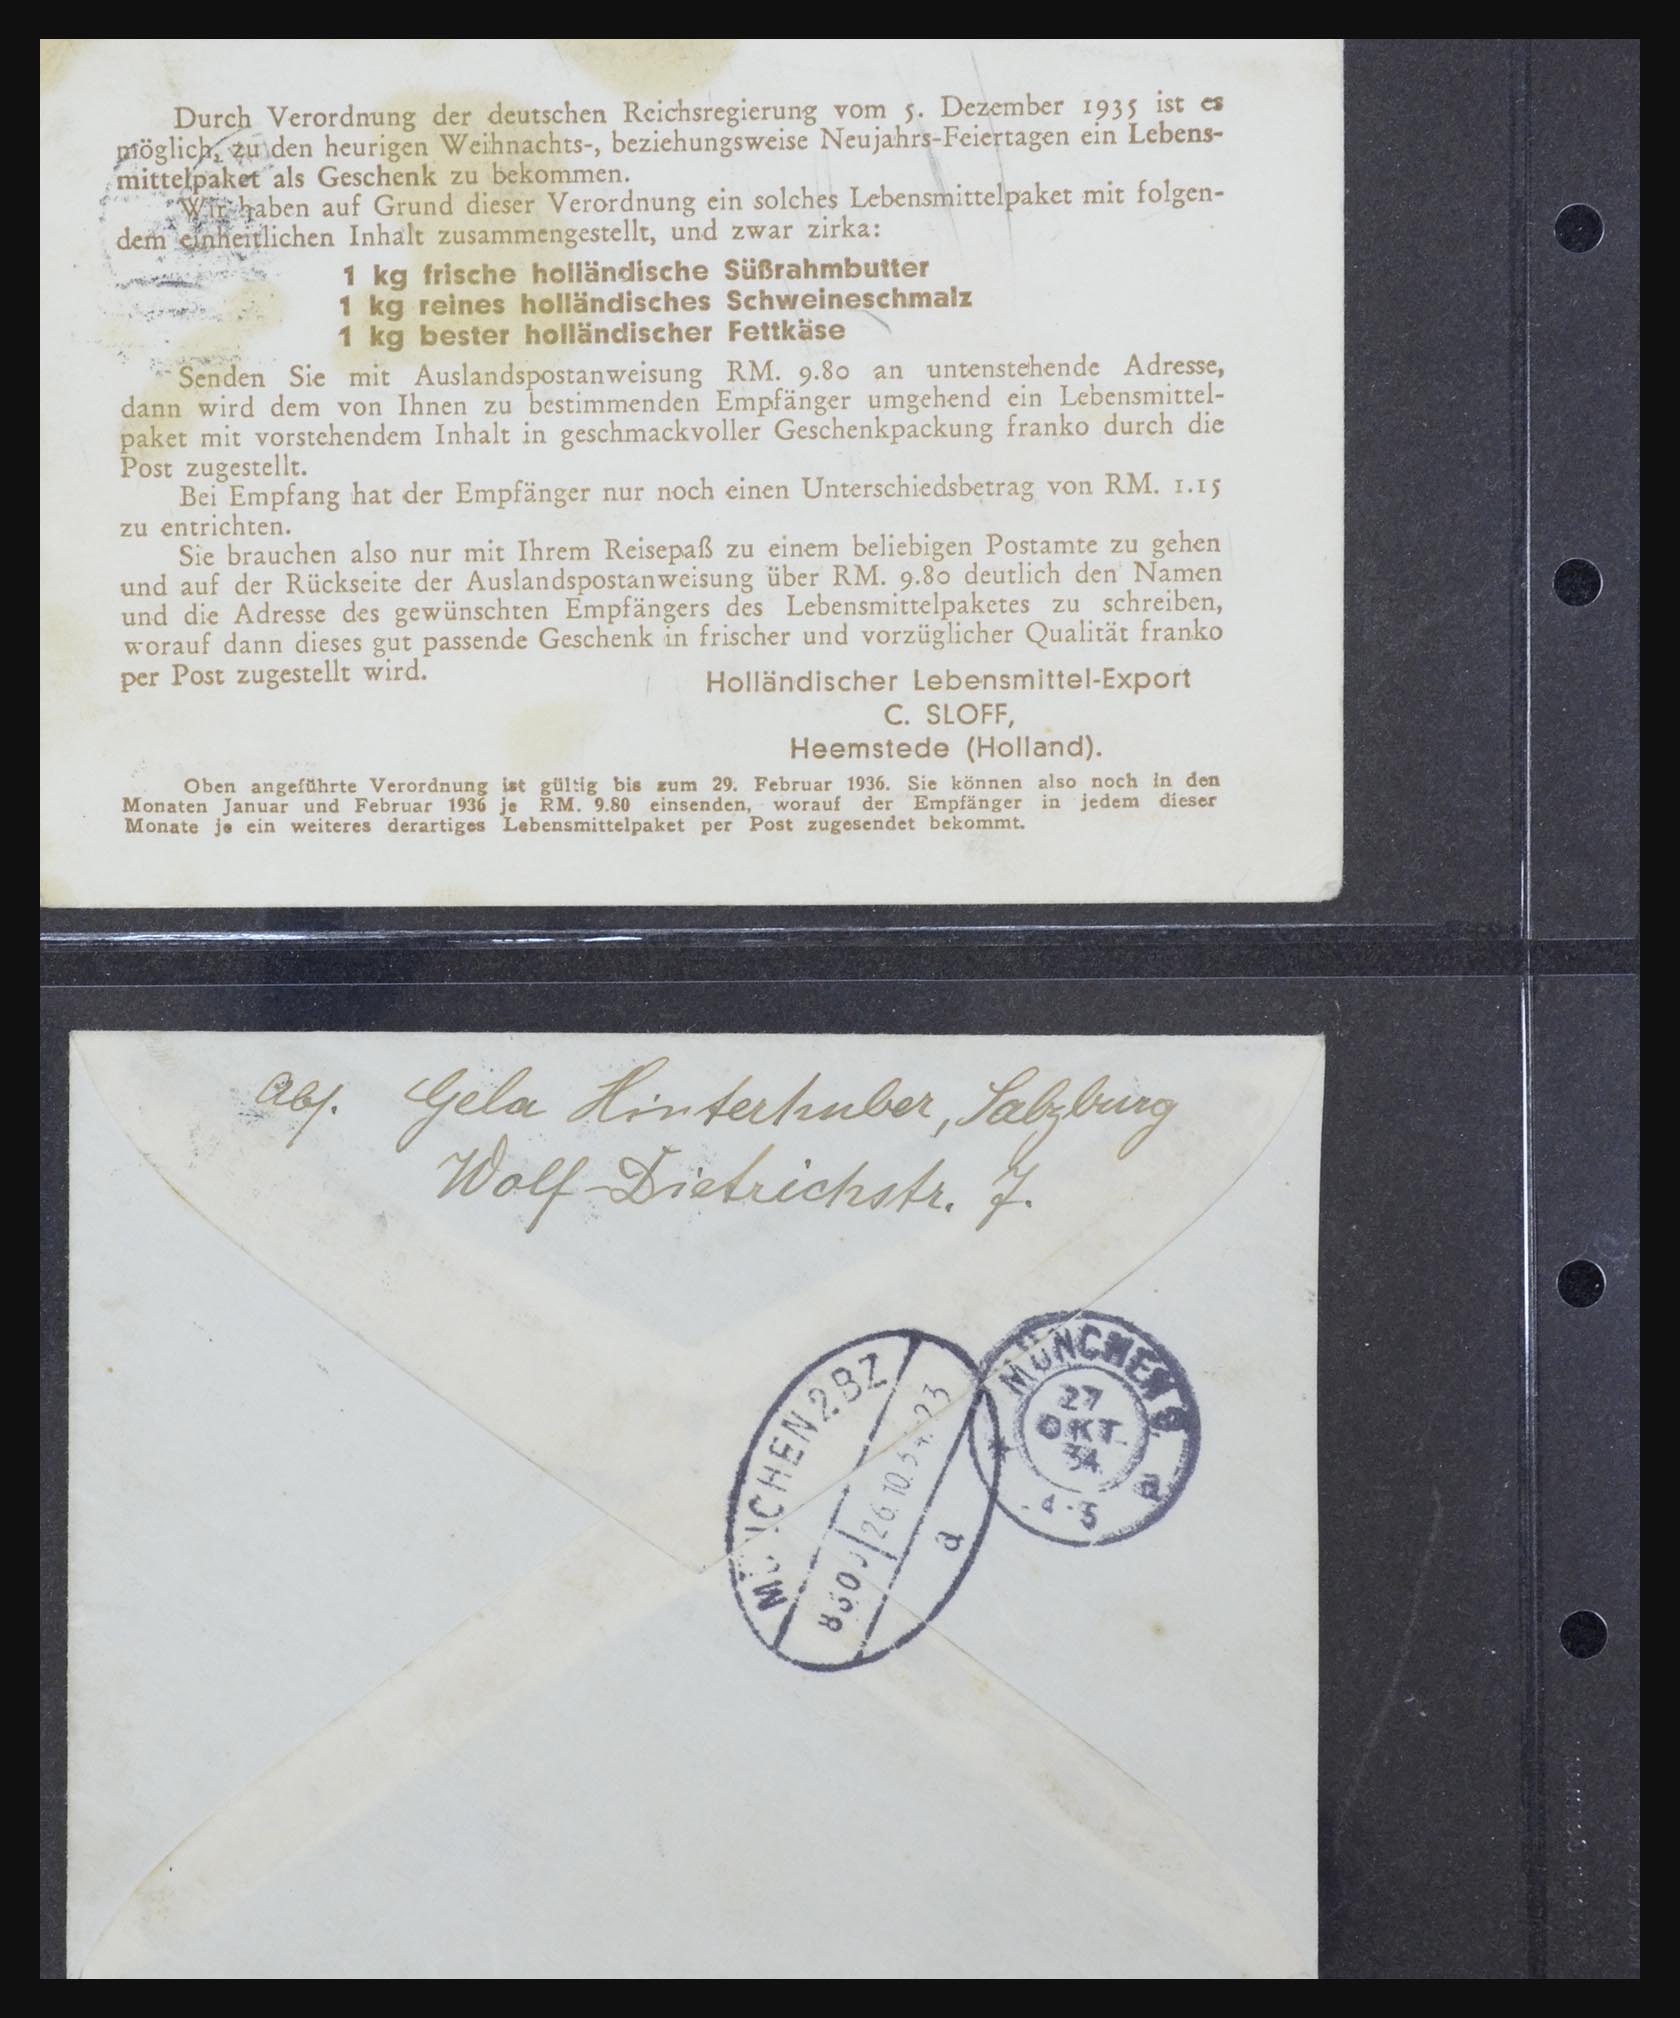 Durch Verordnung der deutschen Reichsregierung vom 5. Dezember 1935 ist es
möglich, zu den heurigen Weihnachts-, beziehungsweise Neujahrs-Feiertagen ein Lebens-
mittelpaket als Geschenk zu bekommen.
Wir haben auf Grund dieser Verordnung ein solches Lebensmittelpaket mit folgen-
dem einheitlichen Inhalt zusammengestellt, und zwar zirka:
1 kg frische holländische Süßrahmbutter
1 kg reines holländisches Schweineschmalz
1 kg bester holländischer Fettkäse
Senden Sie mit Auslandspostanweisung RM. 9.80 an untenstehende Adresse,
dann wird dem von Ihnen zu bestimmenden Empfänger umgehend ein Lebensmittel-
paket mit vorstehendem Inhalt in geschmackvoller Geschenkpackung franko durch die
Post zugestellt.
Bei Empfang hat der Empfänger nur noch einen Unterschiedsbetrag von RM. 1.15
zu entrichten.
Sie brauchen also nur mit Ihrem Reisepaß zu einem beliebigen Postamte zu gehen
und auf der Rückseite der Auslandspostanweisung über RM. 9.80 deutlich den Namen
und die Adresse des gewünschten Empfängers des Lebensmittelpaketes zu schreiben,
worauf dann dieses gut passende Geschenk in frischer und vorzüglicher Qualität franko
per Post zugestellt wird.
Holländischer Lebensmittel-Export
C. SLOFF,
Heemstede (Holland).
Oben angeführte Verordnung ist gültig bis zum 29. Februar 1936. Sie können also noch in den
Monaten Januar und Februar 1936 je RM. 9.80 einsenden, worauf der Empfänger in jedem dieser
Monate je ein weiteres derartiges Lebensmittelpaket per Post zugesendet bekommt.
Abs. Gela Hinterhuber, Salzburg
Wolf-Dietrichstr. 7.
MÜNCHEN 2 BZ
26.10.34.-23
a
MÜNCHEN
27
OKT.
34
4-5
a